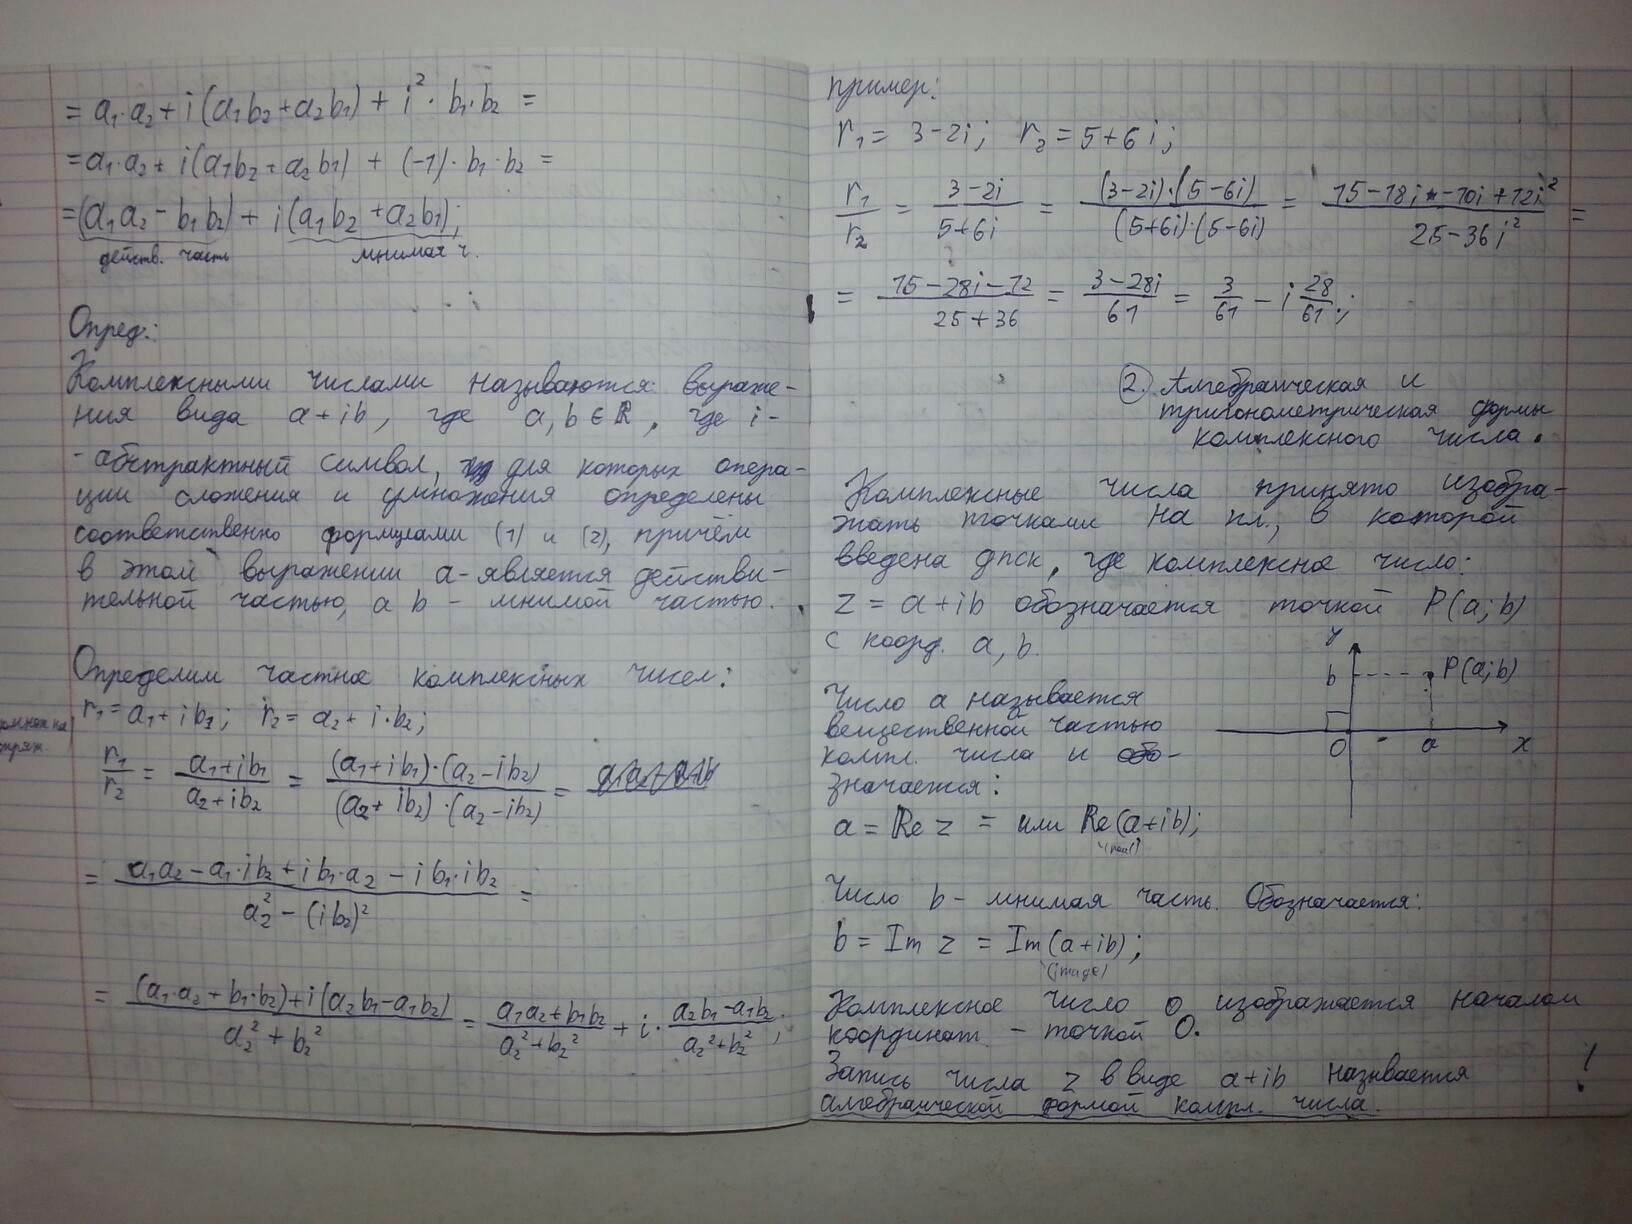 = a₁·a₂ + i(a₁b₂ + a₂b₁) + i²·b₁·b₂ =
= a₁·a₂ + i(a₁b₂ + a₂b₁) + (-1)·b₁·b₂ =
= (a₁a₂ - b₁b₂) + i(a₁b₂ + a₂b₁);
действ. часть мнимая ч.
Опред.:
Комплексными числами называются выраже-
ния вида a + ib, где a, b ∈ ℝ, где i -
- абстрактный символ, для которых опера-
ции сложения и умножения определены
соответственно формулами (1) и (2), причём
в этом выражении a - является действи-
тельной частью, а b - мнимой частью.
Определим частное комплексных чисел:
r₁ = a₁ + ib₁; r₂ = a₂ + i·b₂;
r₁/r₂ = (a₁+ib₁)/(a₂+ib₂) = ((a₁+ib₁)·(a₂-ib₂))/((a₂+ib₂)·(a₂-ib₂)) =
= (a₁a₂ - a₁·ib₂ + ib₁·a₂ - ib₁·ib₂)/(a₂² - (ib₂)²) =
= ((a₁·a₂ + b₁·b₂) + i(a₂b₁ - a₁b₂))/(a₂² + b₂²) = (a₁a₂ + b₁b₂)/(a₂² + b₂²) + i·(a₂b₁ - a₁b₂)/(a₂² + b₂²);
пример:
r₁ = 3-2i; r₂ = 5+6i;
r₁/r₂ = (3-2i)/(5+6i) = ((3-2i)·(5-6i))/((5+6i)·(5-6i)) = (15-18i-10i+12i²)/(25-36i²) =
= (15-28i-12)/(25+36) = (3-28i)/61 = 3/61 - i 28/61;
2. Алгебраическая и
тригонометрическая формы
комплексного числа.
Комплексные числа принято изобра-
жать точками на пл., в которой
введена дпск, где комплексное число:
z = a + ib обозначается точкой P(a; b)
с коорд. a, b.
y
b P(a; b)
O a x
Число a называется
вещественной частью
компл. числа и обо-
значается:
a = Re z = или Re(a+ib);
(real)
Число b - мнимая часть. Обозначается:
b = Im z = Im(a+ib);
(image)
Комплексное число 0 изображается началом
координат - точкой O.
Запись числа z в виде a+ib называется !
алгебраической формой компл. числа.